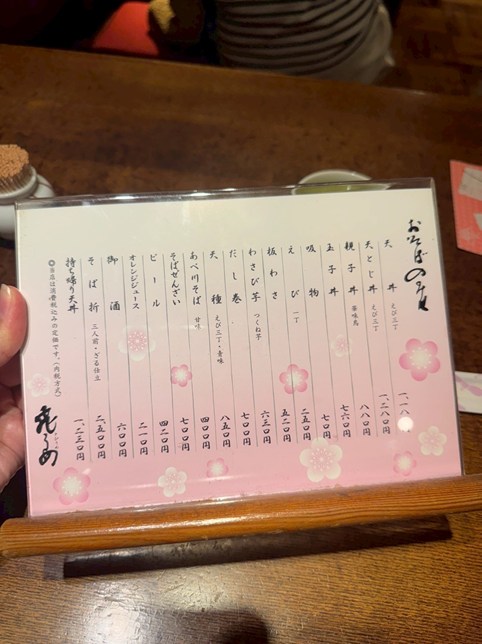 おそばの
天丼 えび三丁 一、一八
天とじ丼 えび三丁 一、二八〇円
親子丼 八八〇円
玉子丼 七六〇円
吸物 七〇〇円
えび 一丁 二五〇円
板わさ 五二〇円
わさび芋 つくね芋 六三〇円
だし巻 七〇〇円
天種 えび三丁・青味 八五〇円
あべ川そば 甘味 四〇〇円
そばぜんざい 七〇〇円
ビール 四二〇円
オレンジジュース 二一〇円
御酒 六〇〇円
そば折 三人前・ざる仕立 二五〇〇円
持ち帰り天丼 一、二三〇円
◎当店は消費税込みの定価です。(内税方式)